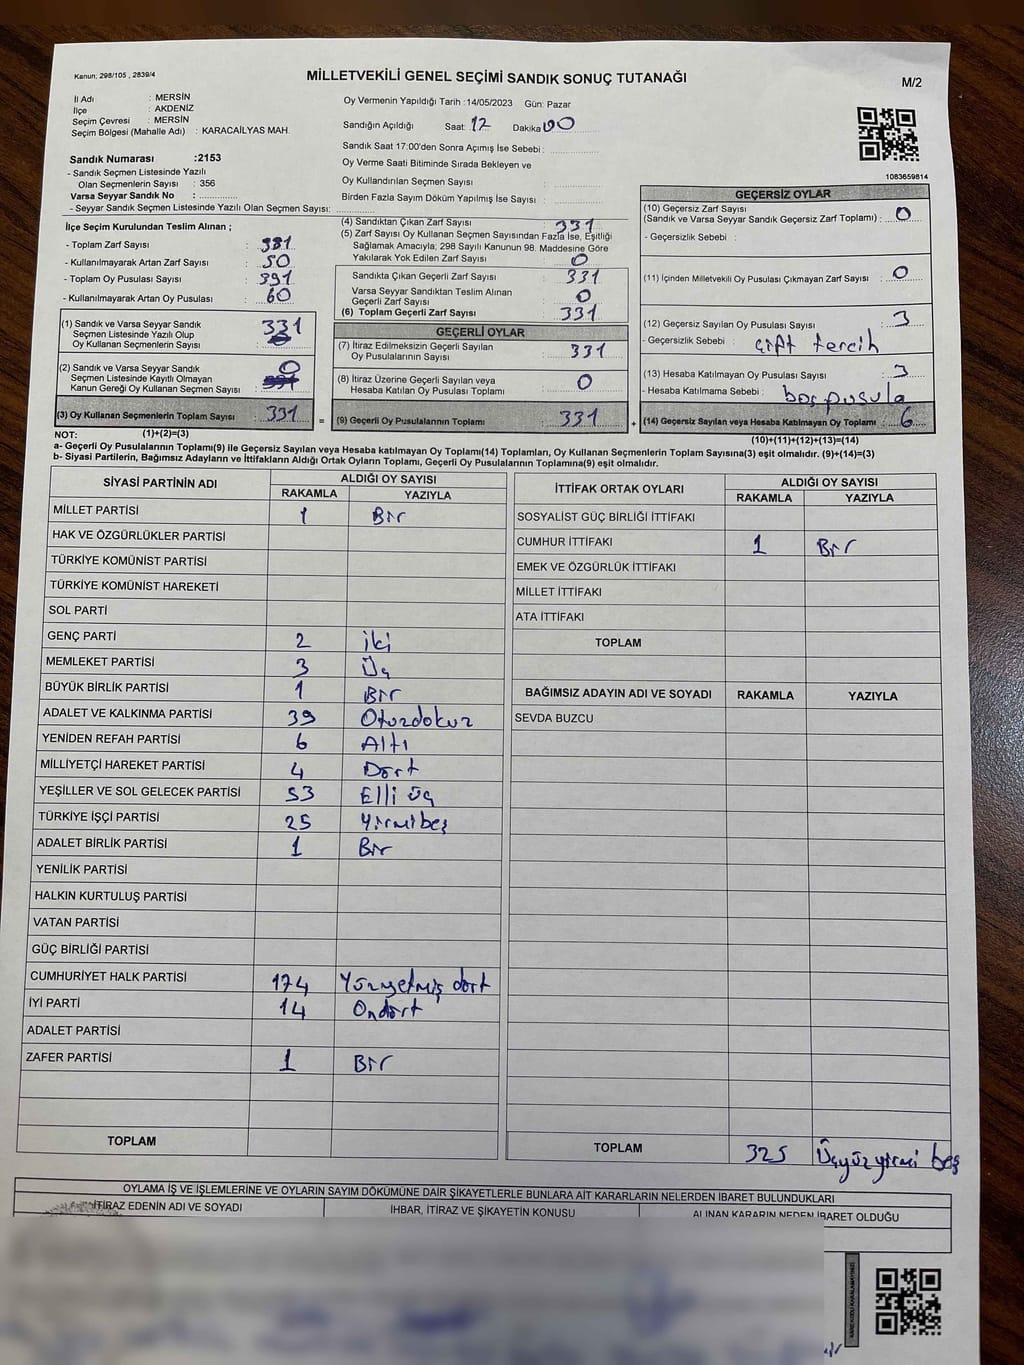 Kanun; 298/105 , 2839/4
MİLLETVEKİLİ GENEL SEÇİMİ SANDIK SONUÇ TUTANAĞI
M/2
İl Adı : MERSİN
İlçe : AKDENİZ
Seçim Çevresi : MERSİN
Seçim Bölgesi (Mahalle Adı) : KARACAİLYAS MAH.
Sandık Numarası :2153
- Sandık Seçmen Listesinde Yazılı
Olan Seçmenlerin Sayısı : 356
Varsa Seyyar Sandık No :
- Seyyar Sandık Seçmen Listesinde Yazılı Olan Seçmen Sayısı:
Oy Vermenin Yapıldığı Tarih :14/05/2023 Gün: Pazar
Sandığın Açıldığı Saat: 12 Dakika 00
Sandık Saat 17:00'den Sonra Açımış İse Sebebi :
Oy Verme Saati Bitiminde Sırada Bekleyen ve
Oy Kullandırılan Seçmen Sayısı :
Birden Fazla Sayım Döküm Yapılmış İse Sayısı :
1083659814
İlçe Seçim Kurulundan Teslim Alınan ;
- Toplam Zarf Sayısı : 381
- Kullanılmayarak Artan Zarf Sayısı : 50
- Toplam Oy Pusulası Sayısı : 391
- Kullanılmayarak Artan Oy Pusulası : 60
(1) Sandık ve Varsa Seyyar Sandık
Seçmen Listesinde Yazılı Olup
Oy Kullanan Seçmenlerin Sayısı : 331
(2) Sandık ve Varsa Seyyar Sandık
Seçmen Listesinde Kayıtlı Olmayan
Kanun Gereği Oy Kullanan Seçmen Sayısı : 0
(3) Oy Kullanan Seçmenlerin Toplam Sayısı : 331 =
(1)+(2)=(3)
(4) Sandıktan Çıkan Zarf Sayısı : 331
(5) Zarf Sayısı Oy Kullanan Seçmen Sayısından Fazla İse, Eşitliği
Sağlamak Amacıyla, 298 Sayılı Kanunun 98. Maddesine Göre
Yakılarak Yok Edilen Zarf Sayısı : 0
Sandıkta Çıkan Geçerli Zarf Sayısı : 331
Varsa Seyyar Sandıktan Teslim Alınan
Geçerli Zarf Sayısı : 0
(6) Toplam Geçerli Zarf Sayısı : 331
GEÇERLİ OYLAR
(7) İtiraz Edilmeksizin Geçerli Sayılan
Oy Pusulalarının Sayısı : 331
(8) İtiraz Üzerine Geçerli Sayılan veya
Hesaba Katılan Oy Pusulası Toplamı : 0
(9) Geçerli Oy Pusulalarının Toplamı : 331 +
GEÇERSİZ OYLAR
(10) Geçersiz Zarf Sayısı
(Sandık ve Varsa Seyyar Sandık Geçersiz Zarf Toplamı) : 0
- Geçersizlik Sebebi :
(11) İçinden Milletvekili Oy Pusulası Çıkmayan Zarf Sayısı : 0
(12) Geçersiz Sayılan Oy Pusulası Sayısı : 3
- Geçersizlik Sebebi : çift tercih
(13) Hesaba Katılmayan Oy Pusulası Sayısı : 3
- Hesaba Katılmama Sebebi : boş pusula
(14) Geçersiz Sayılan veya Hesaba Katılmayan Oy Toplamı : 6
(10)+(11)+(12)+(13)=(14)
NOT:
a- Geçerli Oy Pusulalarının Toplamı(9) ile Geçersiz Sayılan veya Hesaba katılmayan Oy Toplamı(14) Toplamları, Oy Kullanan Seçmenlerin Toplam Sayısına(3) eşit olmalıdır. (9)+(14)=(3)
b- Siyasi Partilerin, Bağımsız Adayların ve İttifakların Aldığı Ortak Oyların Toplamı, Geçerli Oy Pusulalarının Toplamına(9) eşit olmalıdır.
SİYASİ PARTİNİN ADI
ALDIĞI OY SAYISI
RAKAMLA YAZIYLA
MİLLET PARTİSİ 1 Bir
HAK VE ÖZGÜRLÜKLER PARTİSİ
TÜRKİYE KOMÜNİST PARTİSİ
TÜRKİYE KOMÜNİST HAREKETİ
SOL PARTİ
GENÇ PARTİ 2 iki
MEMLEKET PARTİSİ 3 Üç
BÜYÜK BİRLİK PARTİSİ 1 Bir
ADALET VE KALKINMA PARTİSİ 39 Otuzdokuz
YENİDEN REFAH PARTİSİ 6 Altı
MİLLİYETÇİ HAREKET PARTİSİ 4 Dört
YEŞİLLER VE SOL GELECEK PARTİSİ 53 Elli üç
TÜRKİYE İŞÇİ PARTİSİ 25 Yirmibeş
ADALET BİRLİK PARTİSİ 1 Bir
YENİLİK PARTİSİ
HALKIN KURTULUŞ PARTİSİ
VATAN PARTİSİ
GÜÇ BİRLİĞİ PARTİSİ
CUMHURİYET HALK PARTİSİ 174 Yüzyetmiş dört
İYİ PARTİ 14 Ondört
ADALET PARTİSİ
ZAFER PARTİSİ 1 Bir
TOPLAM
İTTİFAK ORTAK OYLARI
ALDIĞI OY SAYISI
RAKAMLA YAZIYLA
SOSYALİST GÜÇ BİRLİĞİ İTTİFAKI
CUMHUR İTTİFAKI 1 Bir
EMEK VE ÖZGÜRLÜK İTTİFAKI
MİLLET İTTİFAKI
ATA İTTİFAKI
TOPLAM
BAĞIMSIZ ADAYIN ADI VE SOYADI RAKAMLA YAZIYLA
SEVDA BUZCU
TOPLAM 325 Üçyüzyirmi beş
OYLAMA İŞ VE İŞLEMLERİNE VE OYLARIN SAYIM DÖKÜMÜNE DAİR ŞİKAYETLERLE BUNLARA AİT KARARLARIN NELERDEN İBARET BULUNDUKLARI
İTİRAZ EDENİN ADI VE SOYADI İHBAR, İTİRAZ VE ŞİKAYETİN KONUSU ALINAN KARARIN NEDEN İBARET OLDUĞU